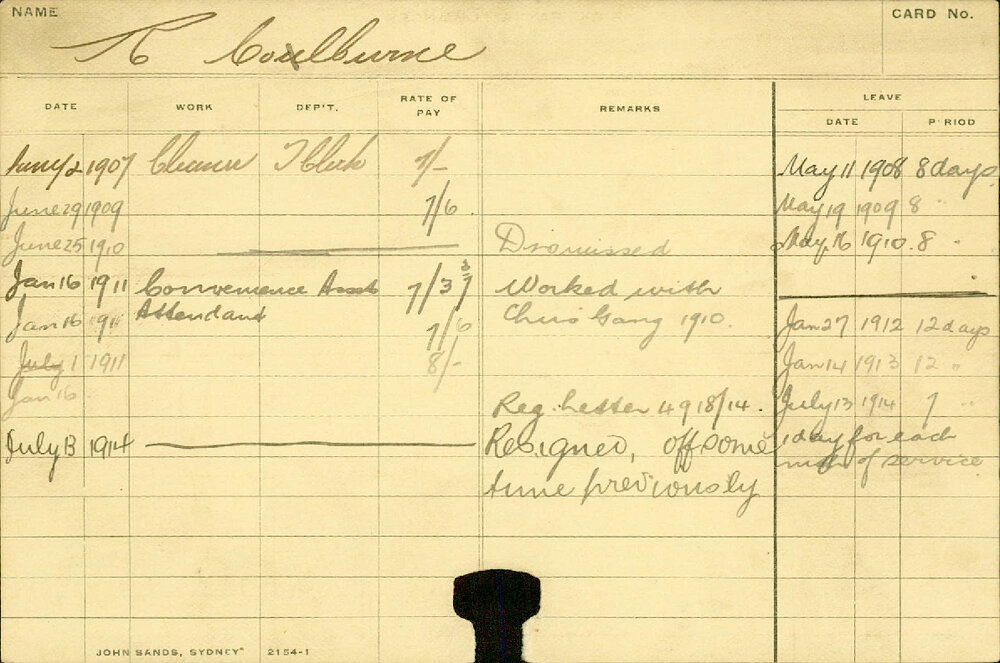 NAME
CARD No.
R Coulburne
DATE WORK DEP'T. RATE OF PAY REMARKS LEAVE
DATE PERIOD
2 1907 Cleaner T Clerk 7/- May 11 1908 8 days
June 29 1909 7/6 May 19 1909 8 "
June 25 1910 Dismissed May 16 1910. 8 "
Jan 16 1911 Convenience Asst 7/3 Worked with
Jan 16 1911 Attendant 7/6 Gang 1910. Jan 27 1912 12 days
July 1 1911 8/- Jan 14 1913 12 "
Jan 16
Reg. Letter 4918/14. July 13 1914 7 "
July 13 1914 Resigned, off some 1 day for each
time previously mth of service
JOHN SANDS, SYDNEY 2154-1